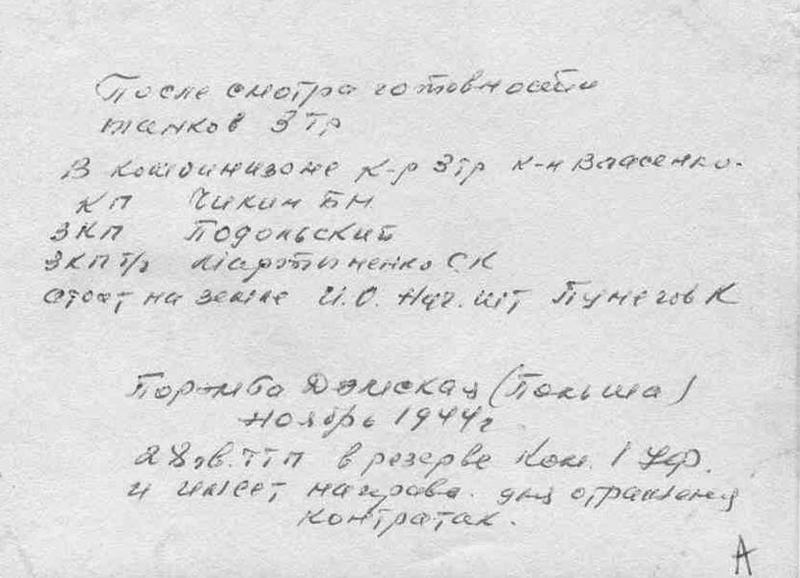 После смотра готовности
танков 3 тр
В комбинизоне к-р 3тр к-н Власенко.
КП Чикин БН
ЗКП Подольский
ЗКП т/ч Мартыненко СК
стоят на земле И.О. Нач. шт Пунегов К
Порэмба Дзмская (Польша)
ноябрь 1944г
28 гв. ТТП в резерве Ком. 1 УФ.
и имеет направ. для отражения
контратак.
А